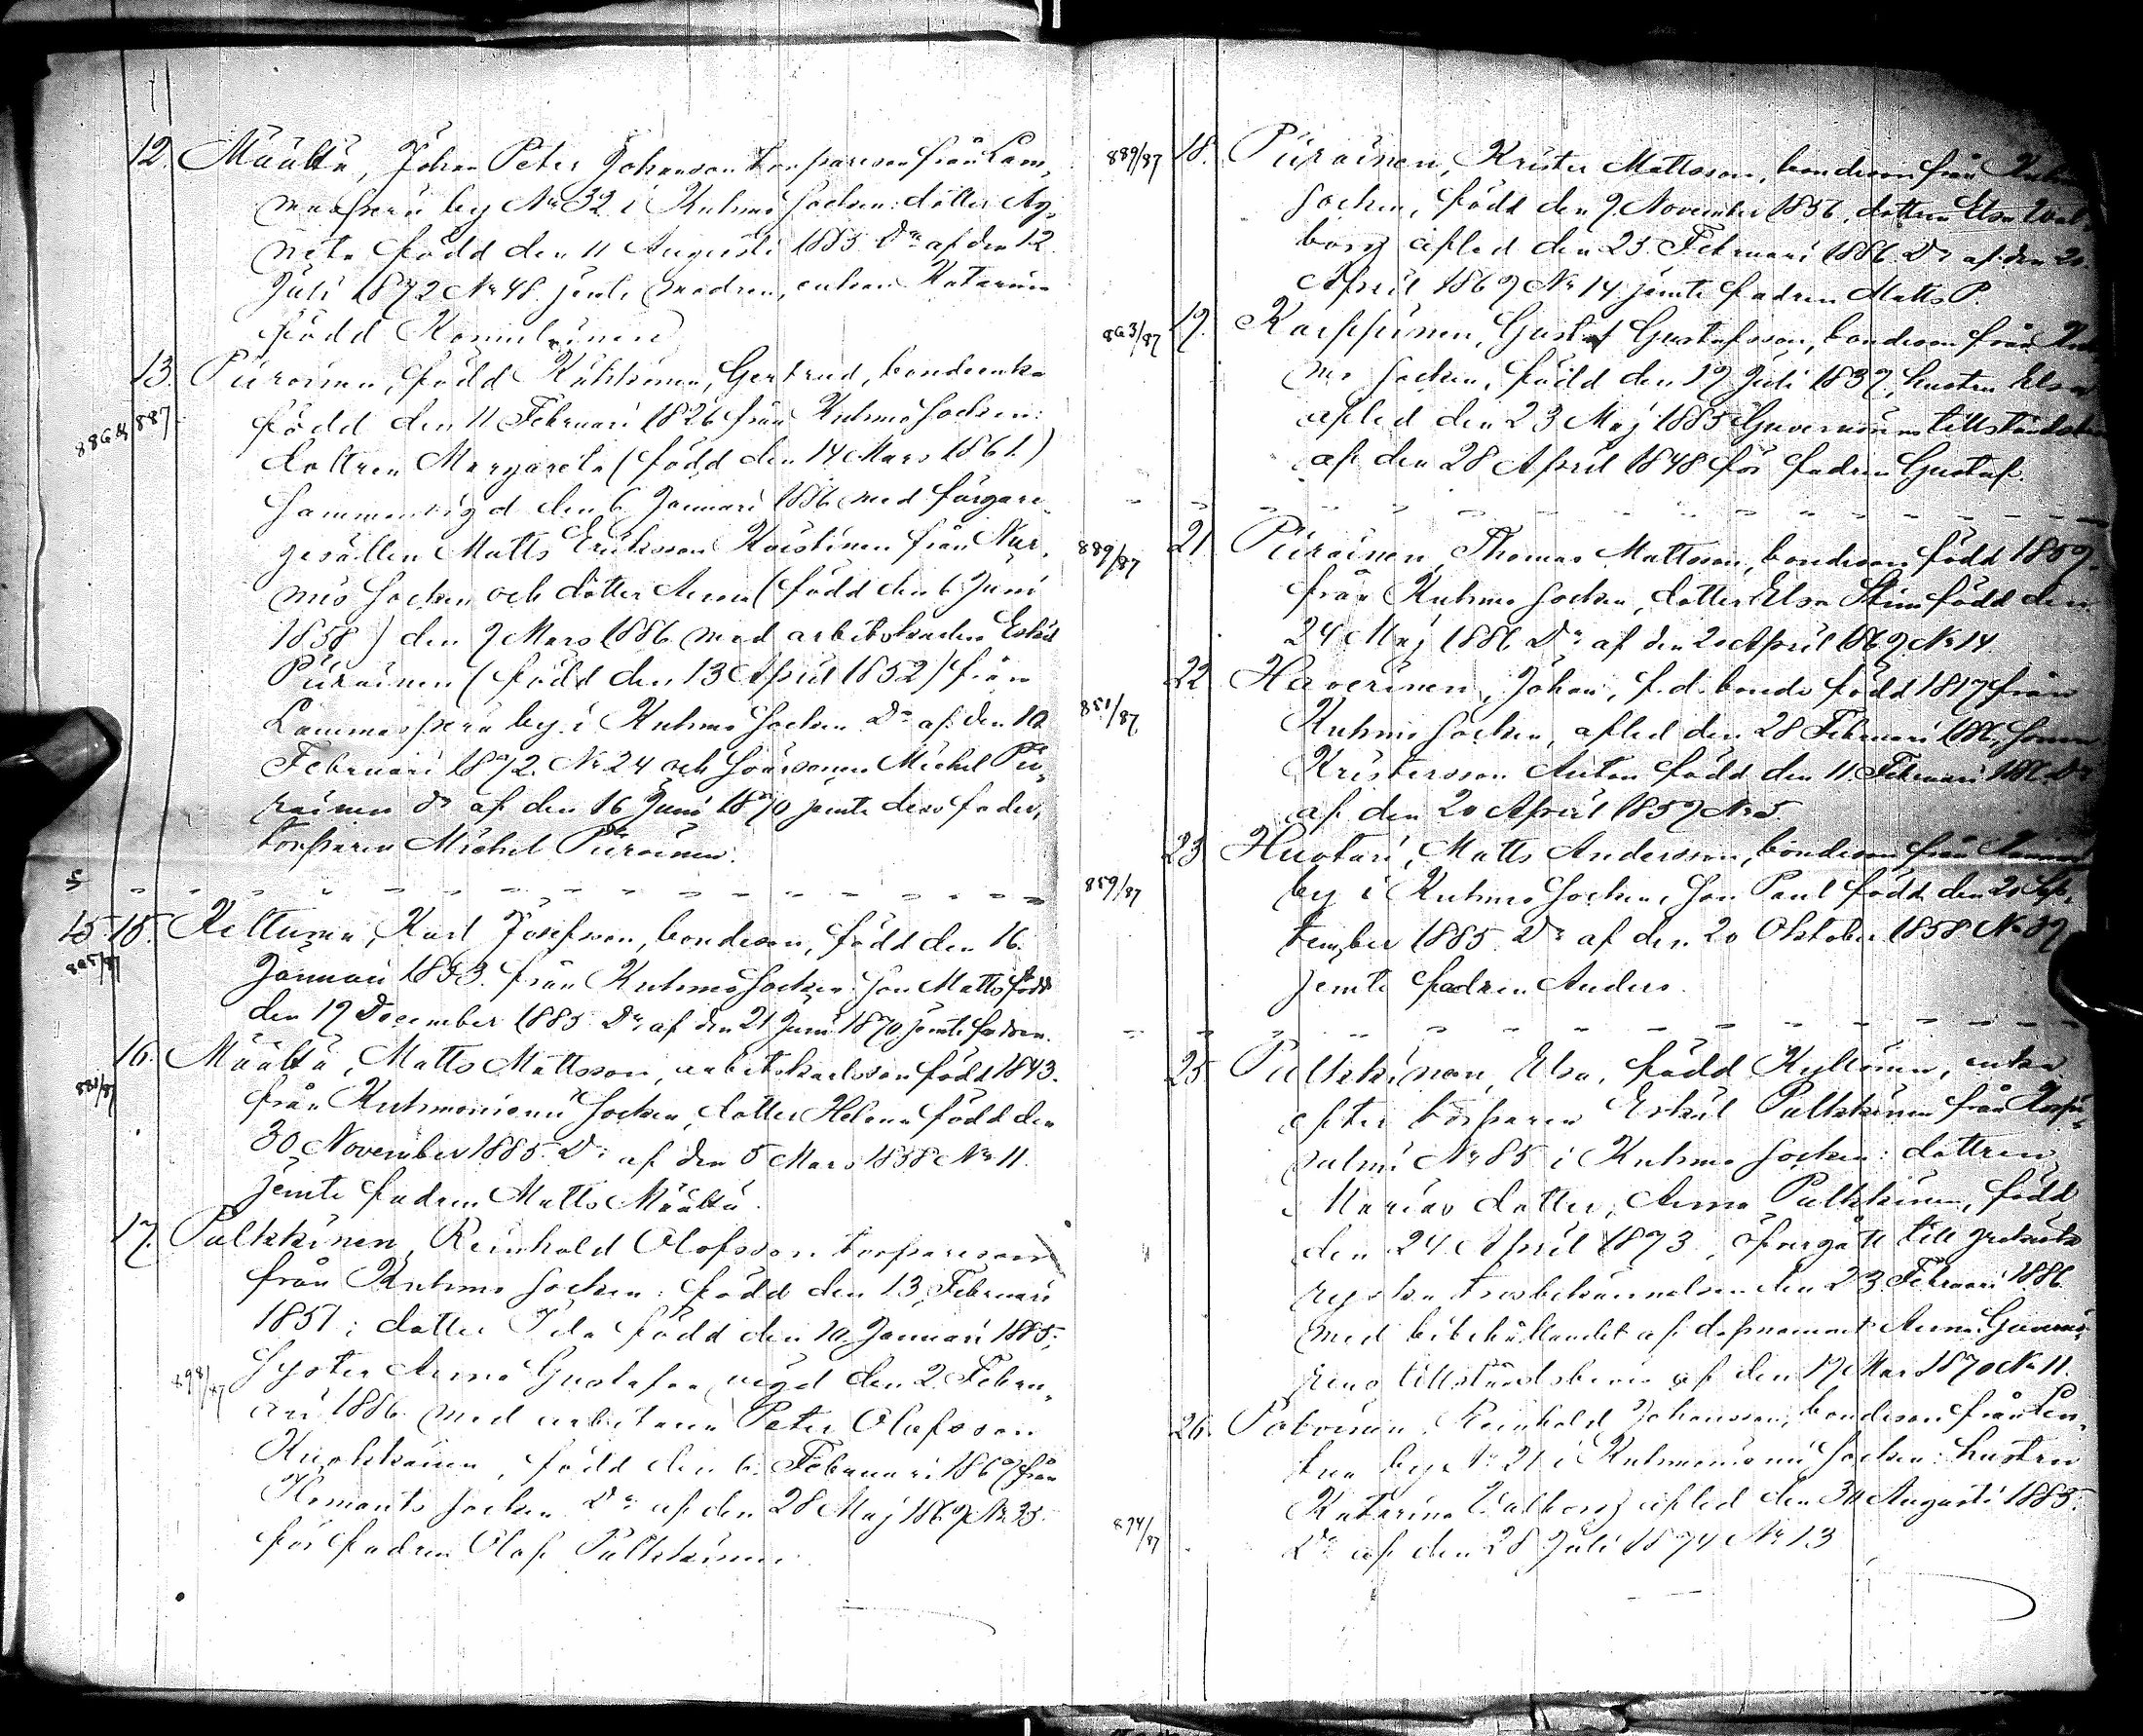 12. Määttä, Johan Peter Johansson torpareson från Lam-
masperä by No 32 i Kuhmo Socken: dotter Ag-
neta född den 11 Augusti 1885 Do af den 12
Juli 1872 No 48 jemte modren, enkan Katarina
född Komulainen
13. Piirainen, född Kähkönen, Gertrud, bondeenka
född den 11 Februari 1826 från Kuhmo Socken:
886 & 887
dottren Margareta (född den 14 Mars 1861)
Sammanvigd den 6 Januari 1886 med färgare-
gesällen Matts Eriksson Koistinen från Nur-
mis Socken och dotter Anna (född den 6 Juni
1858) den 7 Mars 1886 med arbetskarlen Eskil
Piirainen (född den 13 April 1852) från
Lammasperä by i Kuhmo Socken Do af den 10
Februari 1872 No 24 och Sonsonen Michel Pii-
rainen Do af den 16 Juni 1870 jemte dess fader,
torparen Michel Piirainen.
15. 15. Kettunen, Karl Josefsson, bondeson, född den 16
Januari 1853 från Kuhmo Socken: Son Matts född
den 17 December 1885 Do af den 21 Juni 1870 jemte fadren.
16. Määttä, Matts Mattsson, arbetskarlsson född 1843.
881/87
från Kuhmoniemi Socken, dotter Helena född den
30 November 1885. Do af den 5 Mars 1858 No 11.
jemte fadren Matts Määttä.
17. Pulkkinen, Reinhold Olofsson torpareson
från Kuhmo Socken: född den 13 Februari
1851; dotter Ida född den 10 Januari 1885;
898/87
Syster Anna Gustafva vigd den 2 Febru-
ari 1886 med arbetaren Peter Olofsson
född den 6 Februari 1867 från
Ilomants Socken Do af den 28 Maj 1867 No 35.
för fadren Olof Pulkkinen.
889/87 18. Piirainen, Krister Mattsson, bondeson från Kuhmo
Socken, född den 9 November 1856, dottren Elsa Wal-
borg afled den 25 Februari 1886. Do af den 20
April 1869 No 14 jemte fadren Matts P.
863/87 19. Karppinen, Gustaf Gustafsson, bondeson från Kuh-
mo Socken, född den 19 Juli 1837, hustru Elsa
afled den 23 Maj 1885 Guvernörens tillstånds
af den 28 April 1848 för fadren Gustaf.
889/87 21 Piirainen, Thomas Mattsson, bondeson född 1859.
från Kuhmo Socken, dotter Elsa Stina född den
24 Maj 1886 Do af den 20 April 1869 No 14.
22 Haverinen, Johan, f.d. bonde född 1817 från
851/87
Kuhmo Socken, afled den 28 Februari 1886, Sonen
Kristersson Anton född den 11 Februari 1886 Do
af den 20 April 1859 No 5.
23 Huotari, Matts Andersson, bondeson från
859/87
by i Kuhmo Socken, Son Paul född den 20 Sep-
tember 1885 Do af den 20 Oktober 1858 No 37
jemte fadren Anders.
25 Pulkkinen, Elsa, född Kyllönen, enka
efter torparen Eskil Pulkkinen från
salmi No 85 i Kuhmo Socken: dottren
Marias dotter, Anna Pulkkinen, född
den 24 April 1873, öfvergått till grekisk
ryska trosbekännelsen den 23 Februari 1886
med bibehållandet af dopnamnet Anna. Guvernö-
rens tillståndsbevis af den 17 Mars 1870 No 11.
26. Polvinen Reinhold Johansson, bondeson från Len-
tua by No 21 i Kuhmoniemi Socken: hustru
Katarina Valborg afled den 30 Augusti 1885.
874/87
Do af den 28 Juli 1874 No 13